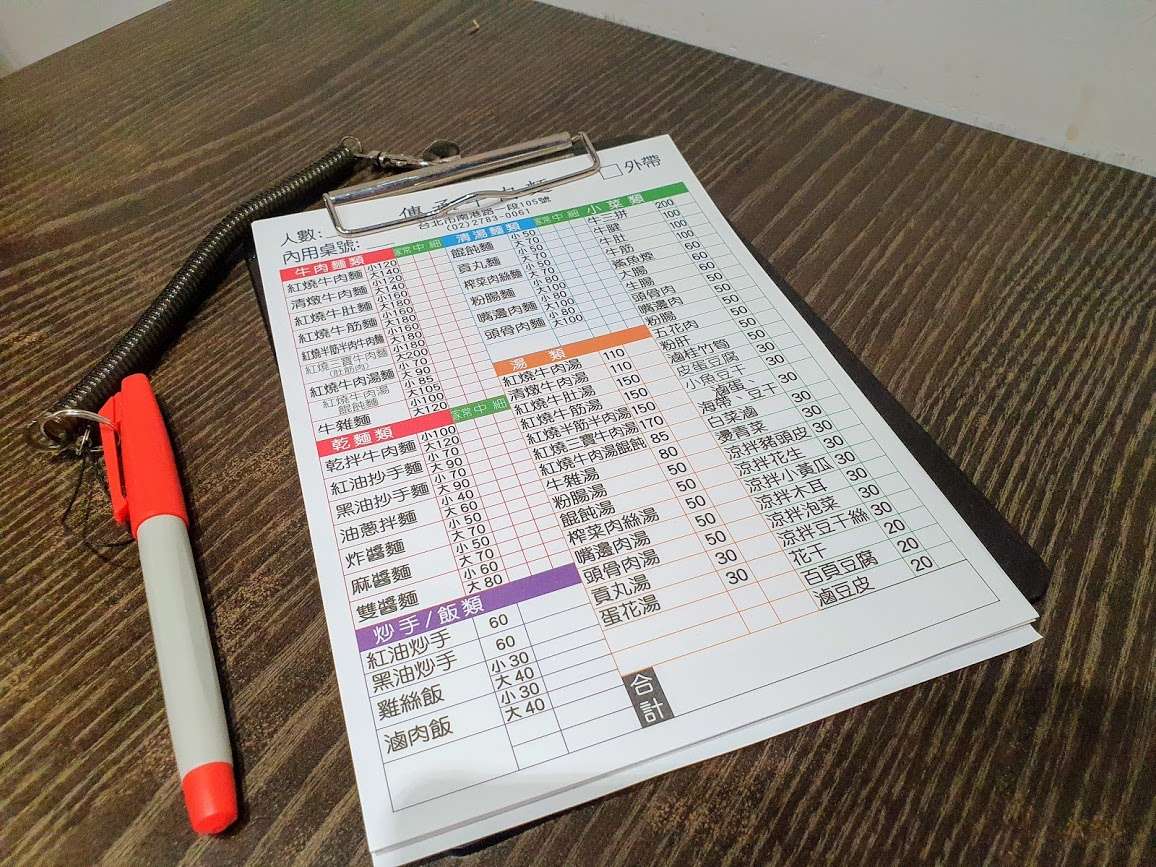 傳承牛肉麵
台北市南港路一段105號
(02)2783-0061
外帶
人數:
內用桌號:
牛肉麵類 家常 中 細
紅燒牛肉麵 小120 大140
清燉牛肉麵 小120 大140
紅燒牛肚麵 小160 大180
紅燒牛筋麵 小160 大180
紅燒半筋半肉牛肉麵 小160 大180
紅燒三寶牛肉麵 (肚筋肉) 大200
紅燒牛肉湯麵 小70 大90
紅燒牛肉湯餛飩麵 小85 大105
牛雜麵 小100 大120
乾麵類 家常 中 細
乾拌牛肉麵 小100 大120
紅油抄手麵 小70 大90
黑油抄手麵 小70 大90
油蔥拌麵 小40 大60
炸醬麵 小50 大70
麻醬麵 小50 大70
雙醬麵 小60 大80
炒手/飯類
紅油炒手 60
黑油炒手 60
雞絲飯 小30 大40
滷肉飯 小30 大40
清湯麵類 家常 中 細
餛飩麵 小50 大70
貢丸麵 小50 大70
榨菜肉絲麵 小50 大70
粉腸麵 小80 大100
嘴邊肉麵 小80 大100
頭骨肉麵 小80 大100
湯類
紅燒牛肉湯 110
清燉牛肉湯 110
紅燒牛肚湯 150
紅燒牛筋湯 150
紅燒半筋半肉湯 150
紅燒三寶牛肉湯 170
紅燒牛肉湯餛飩 85
牛雜湯 80
粉腸湯 50
餛飩湯 50
榨菜肉絲湯 50
嘴邊肉湯 50
頭骨肉湯 50
貢丸湯 30
蛋花湯 30
合計
小菜類
牛三拼 200
牛腱 100
牛肚 100
牛筋 100
鯊魚煙 60
大腸 60
生腸 50
頭骨肉 50
嘴邊肉 50
粉腸 50
五花肉 50
粉肝 50
滷桂竹筍 30
皮蛋豆腐 30
小魚豆干 30
滷蛋、豆干
海帶 30
白菜滷 30
燙青菜 30
涼拌豬頭皮 30
涼拌花生 30
涼拌小黃瓜 30
涼拌木耳 30
涼拌泡菜 30
涼拌豆干絲 30
花干 20
百頁豆腐 20
滷豆皮 20